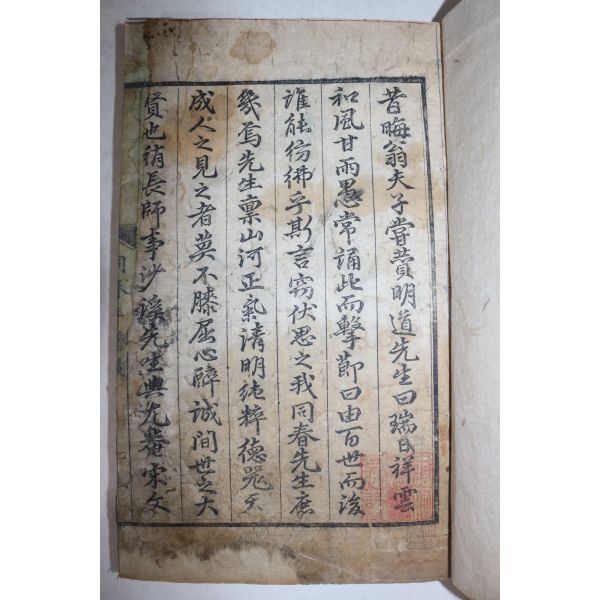 昔晦翁夫子嘗贊明道先生曰瑞日祥雲
和風甘雨愚常誦此而擊節曰由百世而後
誰能彷彿乎斯言竊伏思之我同春先生庶
幾焉先生稟山河正氣清明純粹德器天
成人之見之者莫不膝屈心醉誠間世之大
賢也稍長師事沙溪先生與尤菴宋文